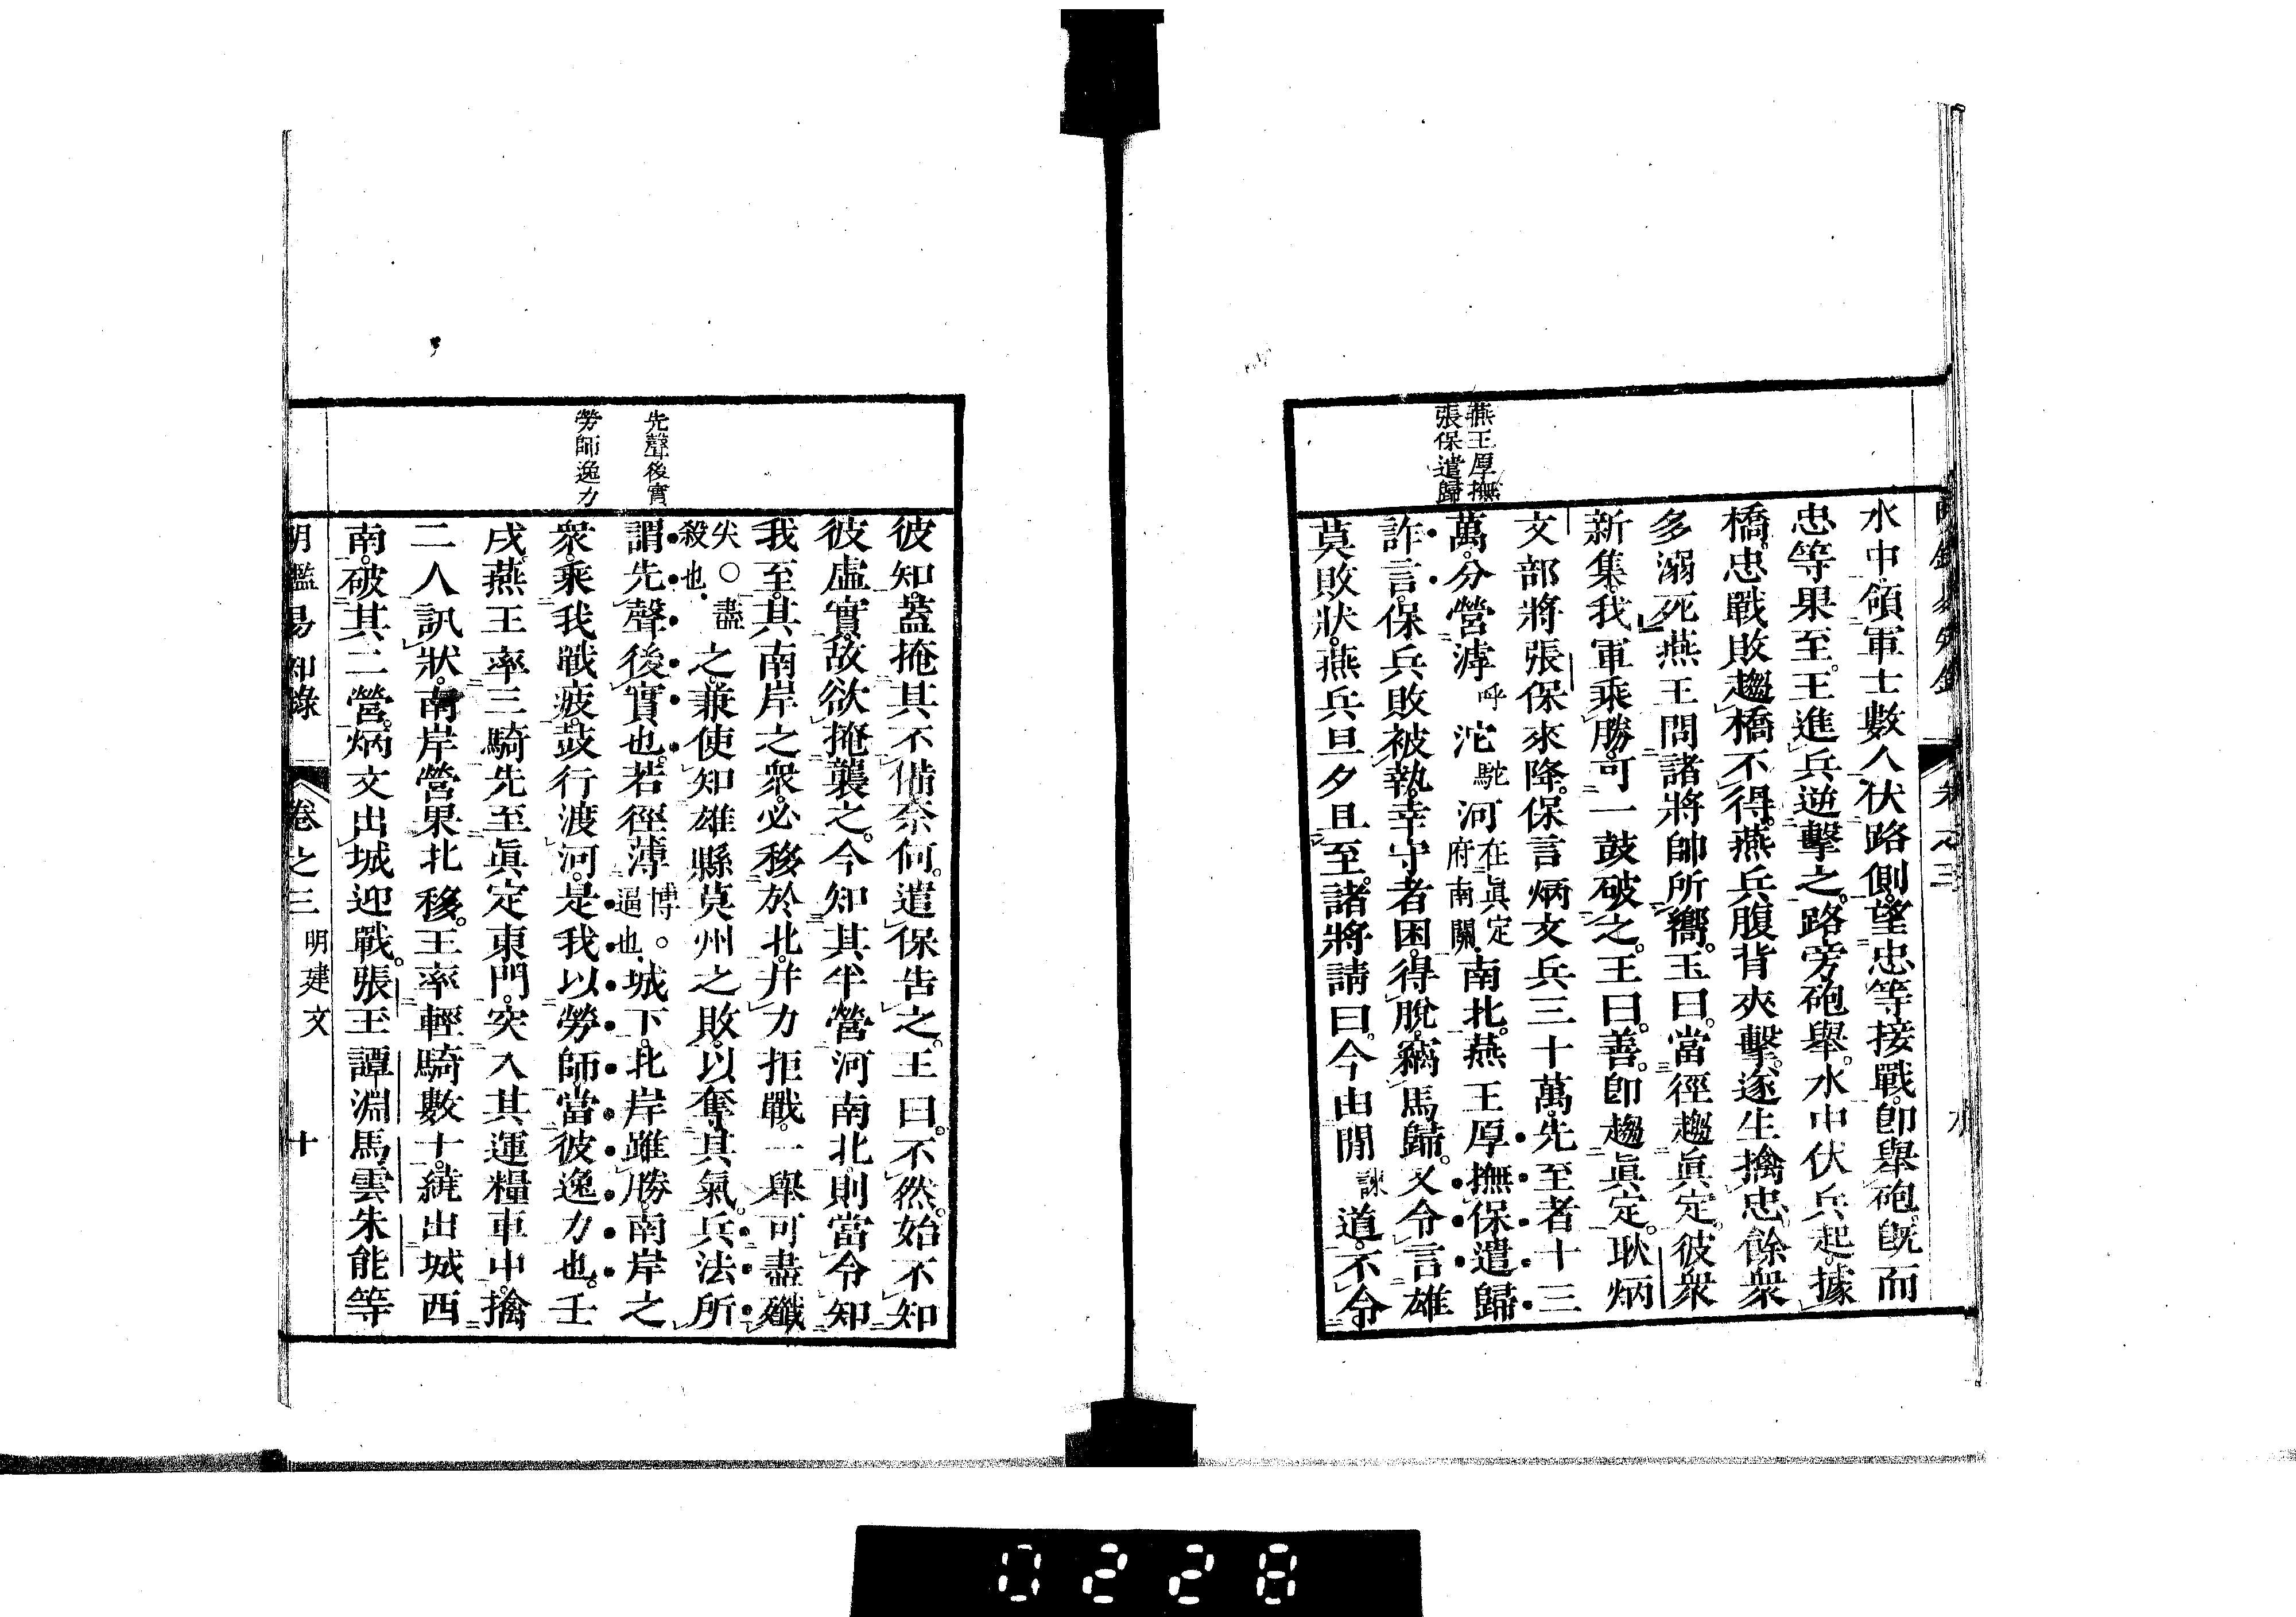 燕王厚撫
張保遣歸
水中領軍士數人伏路側望忠等接戰卽舉砲旣而
忠等果至王進兵逆擊之路旁砲舉水中伏兵起據
橋忠戰敗趨橋不得燕兵腹背夾擊遂生擒忠餘衆
多溺死燕王問諸將帥所嚮王曰當徑趨眞定彼衆
新集我軍乘勝可一鼓破之王曰善卽趨眞定耿炳
文部將張保來降保言炳文兵三十萬先至者十三
萬分營滹呼沱駝河在眞定府南關南北燕王厚撫保遣歸
詐言保兵敗被執幸守者困得脫竊馬歸又令言雄
莫敗狀燕兵旦夕且至諸將請曰今由閒諫道不令
先聲後實
勞師逸力
彼知蓋掩其不備奈何遣保告之王曰不然始不知
彼虛實故欲掩襲之今知其半營河南北則當令知
我至其南岸之衆必移於北幷力拒戰一舉可盡殲
尖○盡殺也之兼使知雄縣莫州之敗以奪其氣兵法所
謂先聲後實也若徑薄博逼也城下北岸雖勝南岸之
衆乘我戰疲鼓行渡河是我以勞師當彼逸力也壬
戌燕王率三騎先至眞定東門突入其運糧車中擒
二人訊狀南岸營果北移王率輕騎數十繞出城西
南破其二營炳文出城迎戰張玉譚淵馬雲朱能等
明鑑易知錄 卷之三 明建文 十
0228